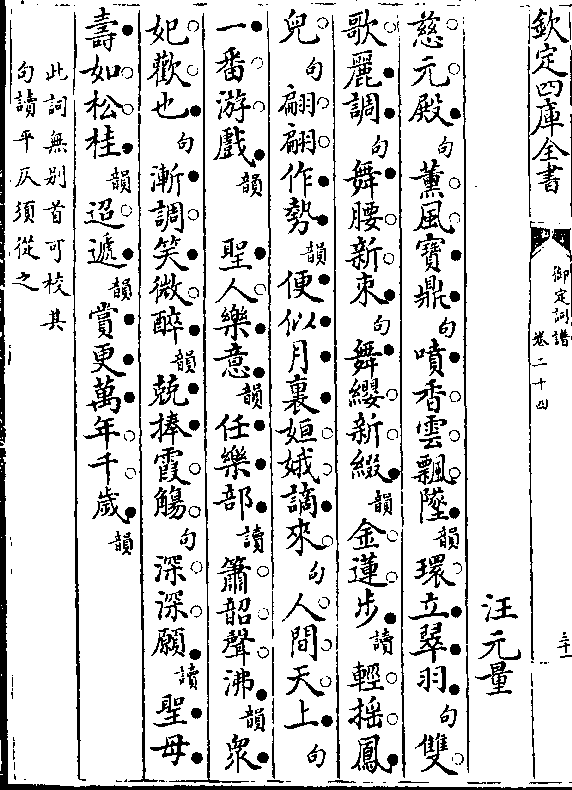 欽定四庫全書
御定詞譜
卷二十四
三十一
汪元量
慈元殿句薰風寶鼎句噴香雲飄墜韻環立翠羽句雙
歌麗調句舞腰新束句舞纓新綴韻金蓮步讀輕搖鳳
兒句翩翩作勢韻便似月裏姮娥謫來句人間天上句
一番游戲韻 聖人樂意韻任樂部讀簫韶聲沸韻衆
妃歡也句漸調笑微醉韻兢捧霞觴句深深願讀聖母
壽如松桂韻迢遞韻賞更萬年千歲韻
此詞無別首可校其
句讀平仄須從之